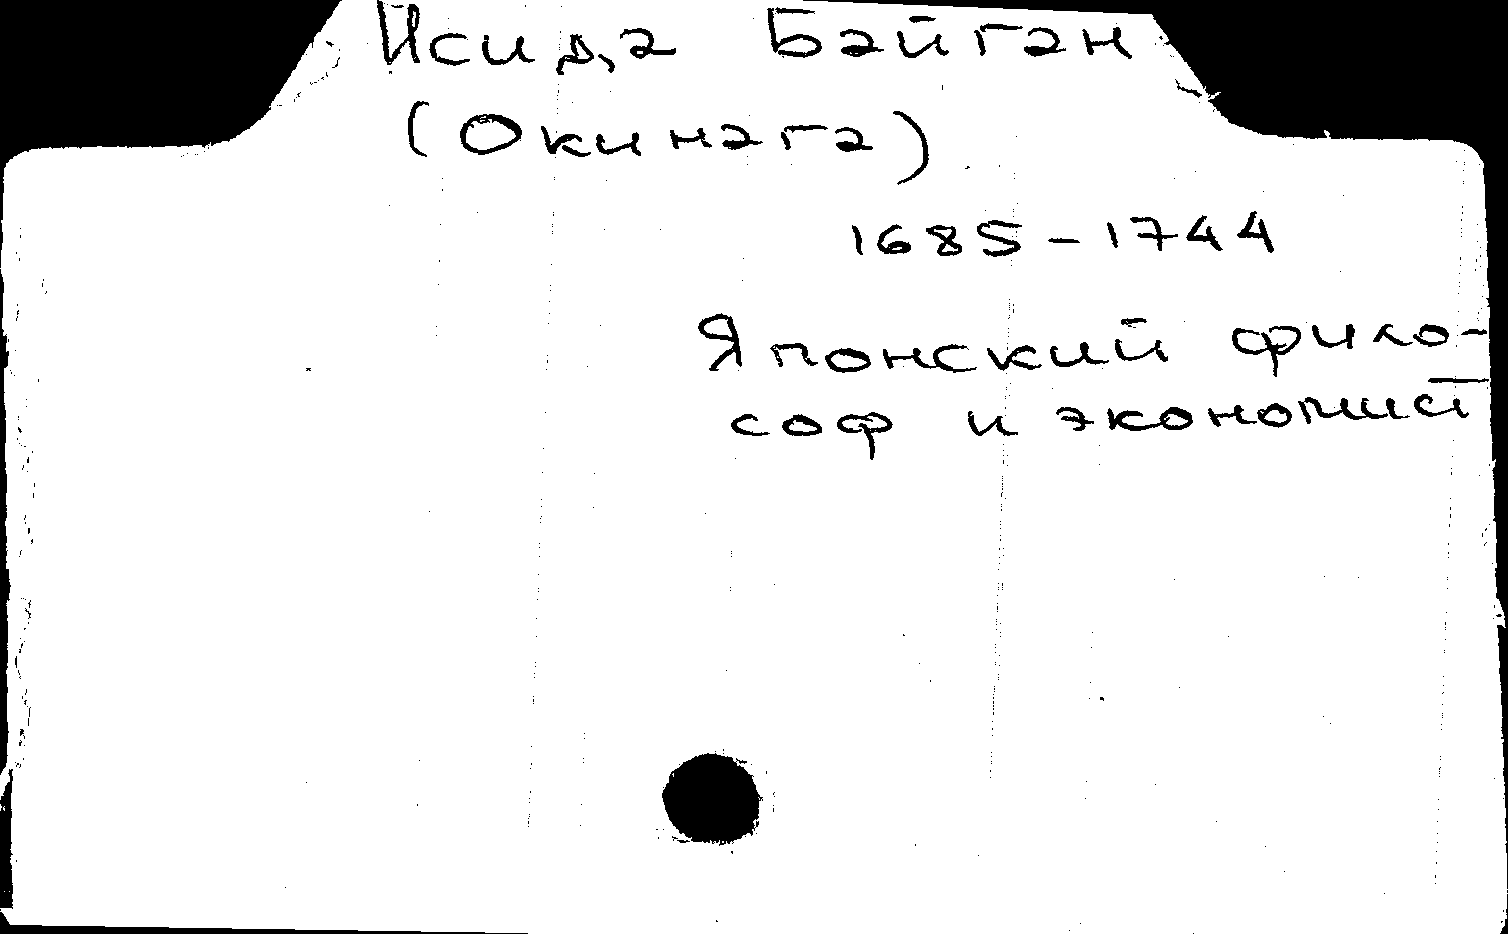 Исида Байган
(Окинага)
1685-1744
Японский фило-
соф и экономист